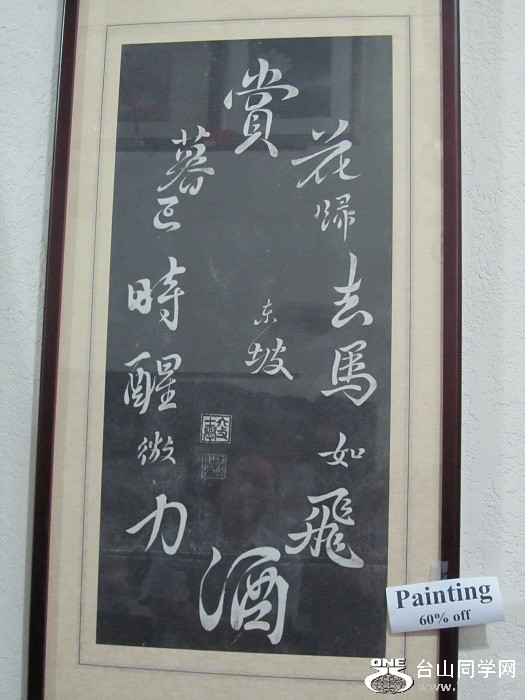 賞
花歸去馬如飛
酒
力微醒時已暮
东坡
Painting
60% off
ONE
台山同学网